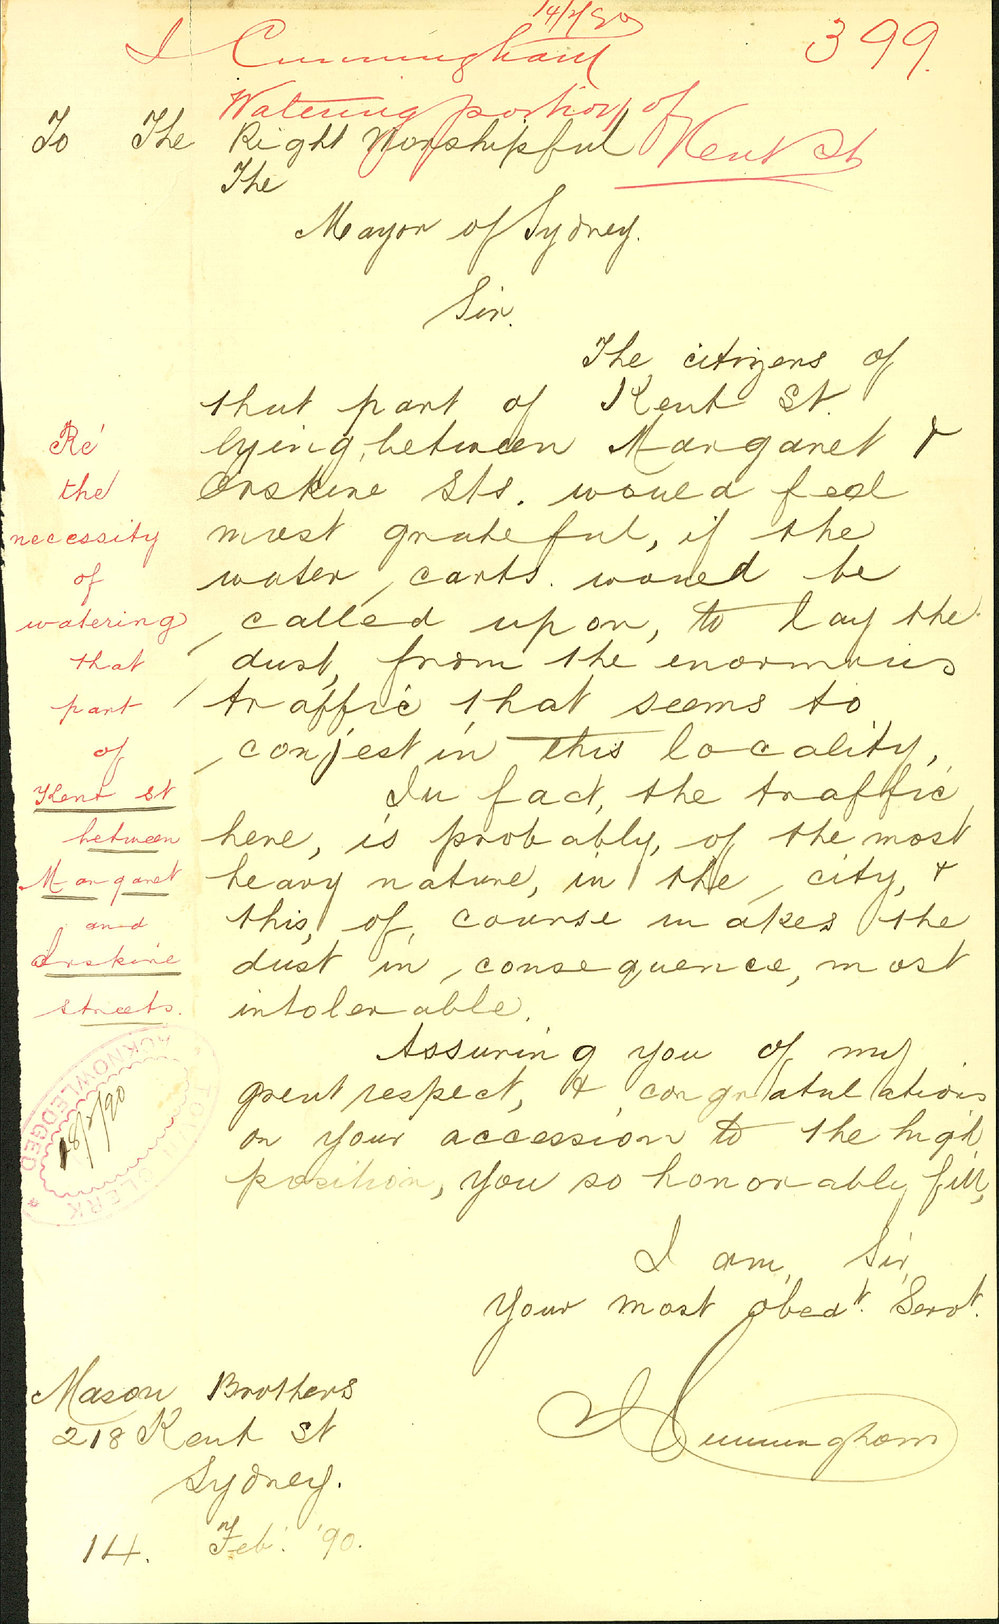 14/2/90
I Cunningham
399.
Watering portion of
Kent St
To The Right Worshipful
The
Mayor of Sydney.
Sir.
The citizens of
that part of Kent St.
lying, between Margaret &
Erskine Sts. would feel
most grateful, if the
water carts. would be
called upon, to lay the
dust, from the enormous
traffic that seems to
conjest in this locality,
In fact, the traffic
here, is probably, of the most
heavy nature, in the city, &
this, of, course makes the
dust in consequence, most
intolerable.
Assuring you of my
great respect, & congratulations
on your accession to the high
position, you so honorably fill,
I am, Sir,
Your most obedt. Servt.
I Cunningham
Mason Brothers
218 Kent St
Sydney.
14. Feby. '90.
Re
the
necessity
of
watering
that
part
of
Kent St
between
Margaret
and
Erskine
Streets.
TOWN CLERK
ACKNOWLEDGED
18/2/90